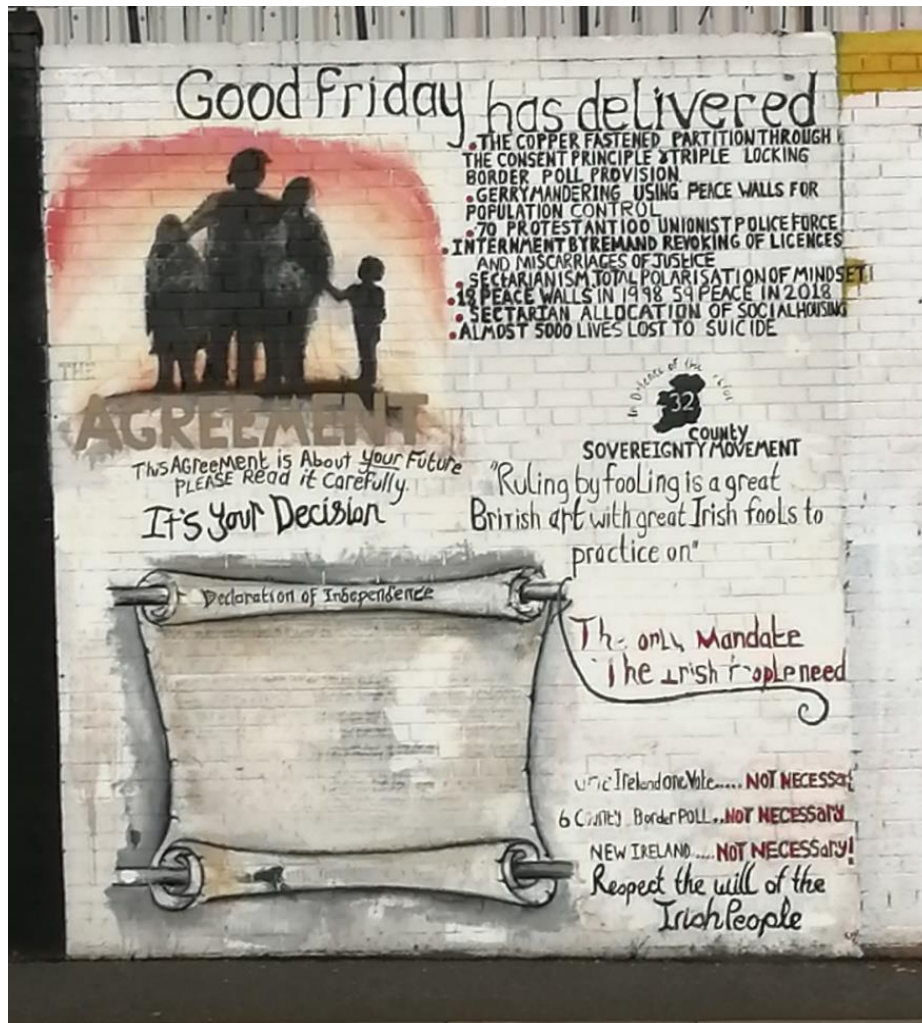 Good friday has delivered
• THE COPPER FASTENED PARTITION THROUGH
THE CONSENT PRINCIPLE & TRIPLE LOCKING
BORDER POLL PROVISION
• GERRYMANDERING USING PEACE WALLS FOR
POPULATION CONTROL
• 70 PROTESTANT 100 UNIONIST POLICE FORCE
• INTERNMENT BY REMAND REVOKING OF LICENCES
AND MISCARRIAGES OF JUSTICE
• SECTARIANISM TOTAL POLARISATION OF MINDSET
• 18 PEACE WALLS IN 1998 59 PEACE IN 2018
• SECTARIAN ALLOCATION OF SOCIAL HOUSING
• ALMOST 5000 LIVES LOST TO SUICIDE
THE
AGREEMENT
This Agreement is About your Future
PLEASE Read it Carefully.
It's your Decision
In Defence of the
32
COUNTY
SOVEREIGNTY MOVEMENT
"Ruling by fooling is a great
British art with great Irish fools to
practice on"
Declaration of Independence
The only Mandate
The Irish People need
Ireland one Vote..... NOT NECESSARY
6 County Border POLL.. NOT NECESSARY
NEW IRELAND .... NOT NECESSARY!
Respect the will of the
Irish People